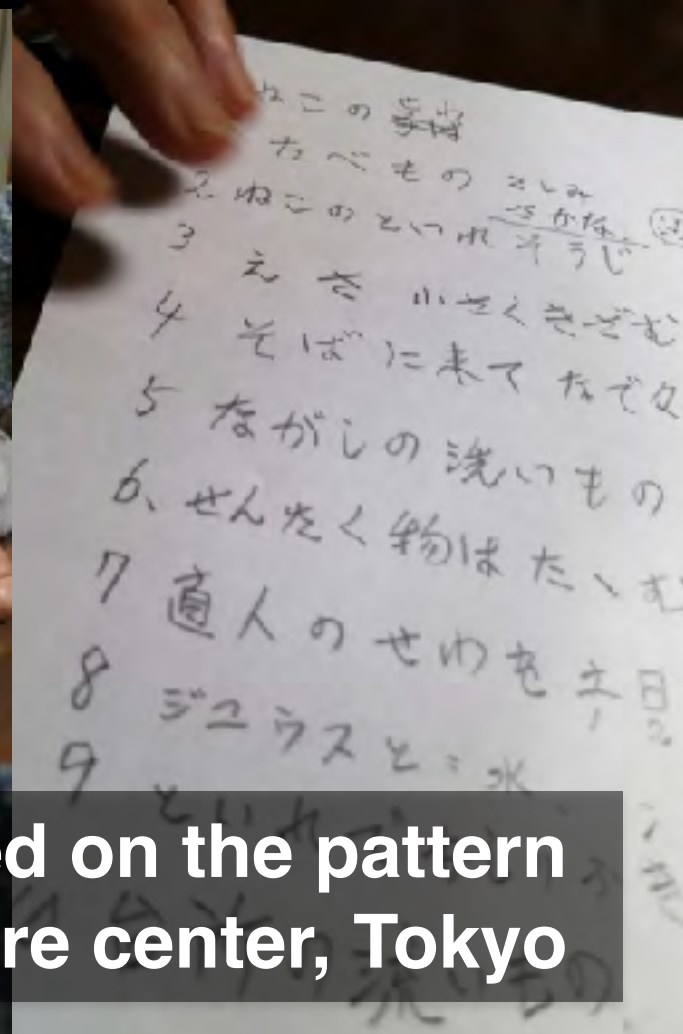 ねこの
たべもの さしみ
さかな
2. ねこのといれ そうじ
3 えさ 小さくきざむ
4 そばに来てなで
5 ながしの洗いもの
6、せんたく物はたゝむ
7 直人のせわを土日
8 ジュウスと水
9 といれ
洗いもの
ed on the pattern
re center, Tokyo